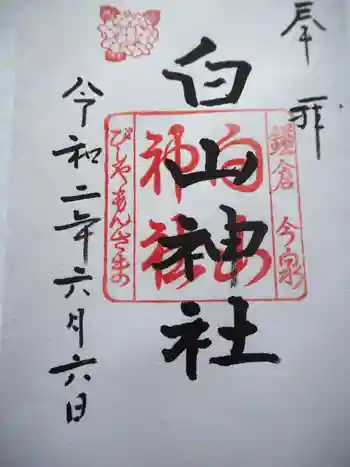 奉拝
鎌倉 今泉
白山神社
白山神社
びしゃもんさま
令和二年六月六日